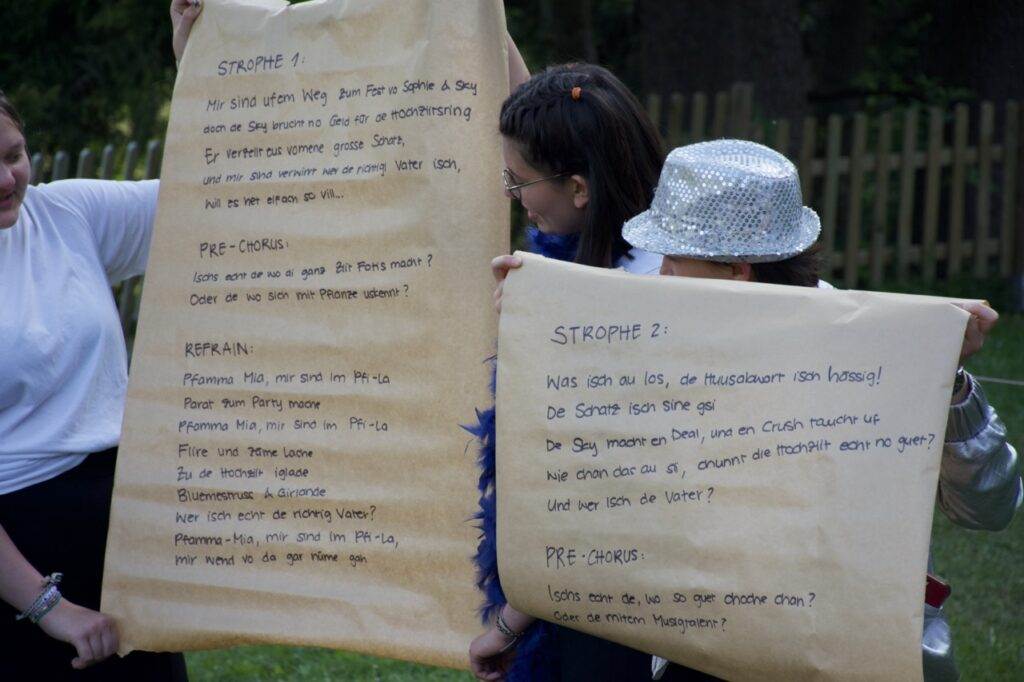 STROPHE 1:
Mir sind ufem Weg zum Fest vo Sophie & Sky
doch de Sky brucht no Geld für de Hochziitsring
Er verzellt eus vomene grosse Schatz,
und mir sind verwirrt wer de richtigi Vater isch,
will es het eifach so vill...
PRE-CHORUS:
Ischs echt de wo di ganz Ziit Fotis macht?
Oder de wo sich mit Pflanze uskennt?
REFRAIN:
Pfamma Mia, mir sind im Pfi-La
Parat zum Party mache
Pfamma Mia, mir sind im Pfi-La
Fiire und zäme lache
Zu de Hochziit iglade
Bluemestruss & Girlande
Wer isch echt de richtig Vater?
Pfamma-Mia, mir sind im Pfi-La,
mir wend vo da gar nüme gah
STROPHE 2:
Was isch au los, de Huusabwart isch hässig!
De Schatz isch sine gsi
De Sky macht en Deal, und en Crush taucht uf
Wie chan das au si, chunnt die Hochziit echt no guet?
Und wer isch de Vater?
PRE-CHORUS:
Ischs echt de, wo so guet choche chan?
Oder de mitem Musigtalent?